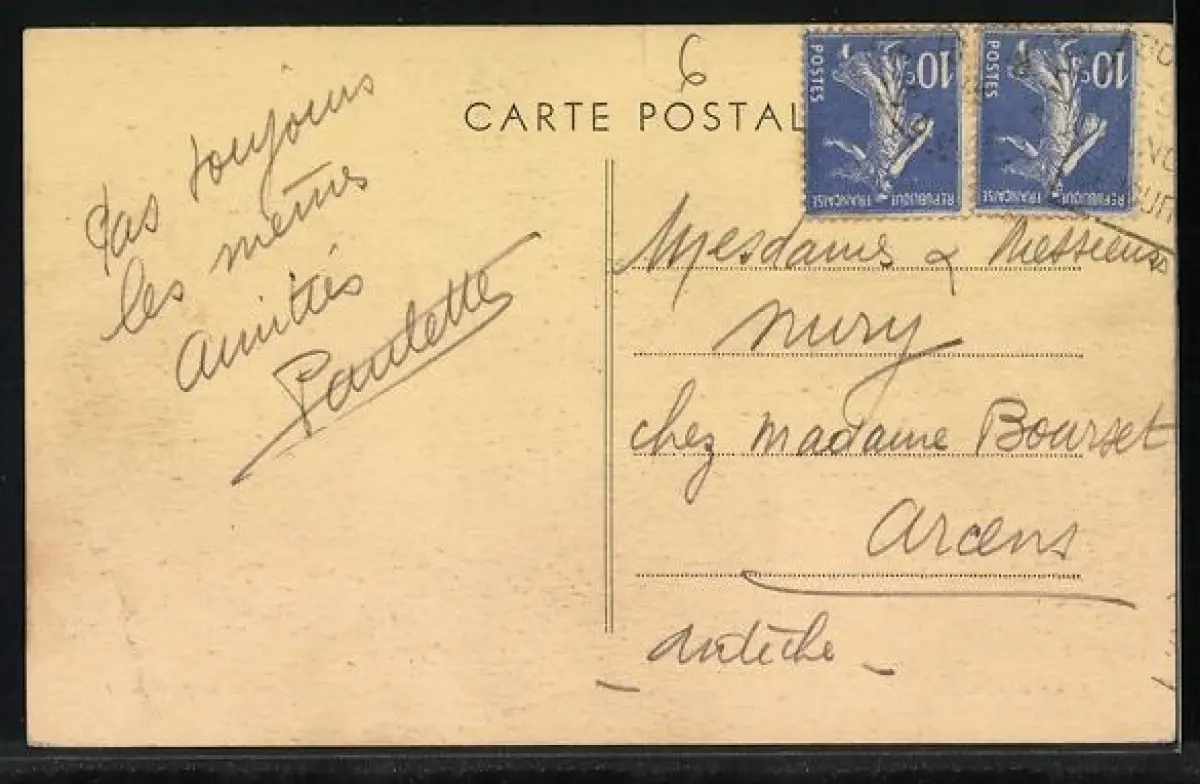 6
CARTE POSTAL
10c
POSTES
REPUBLIQUE FRANÇAISE
10c
POSTES
REPUBLIQUE FRANÇAISE
Pas toujours
les mêmes
amitiés
Paulette
Mesdames & Messieurs
Nury
chez Madame Bourset
Arcens
Ardèche